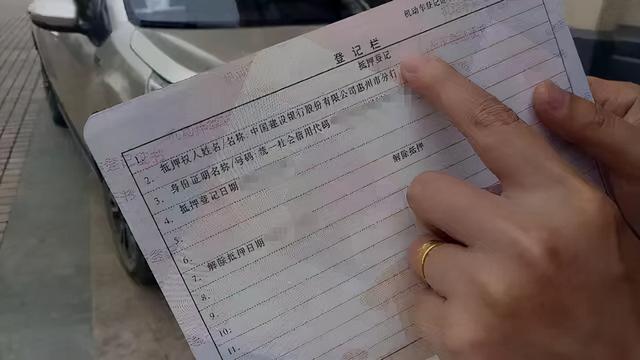 机动车登记证
登记栏
1. 抵押登记
2. 抵押权人姓名/名称:中国建设银行股份有限公司惠州市分行
3. 身份证明名称/号码:统一社会信用代码
4. 抵押登记日期
5. 解除抵押
6.
7. 解除抵押日期
8.
9.
10.
11.